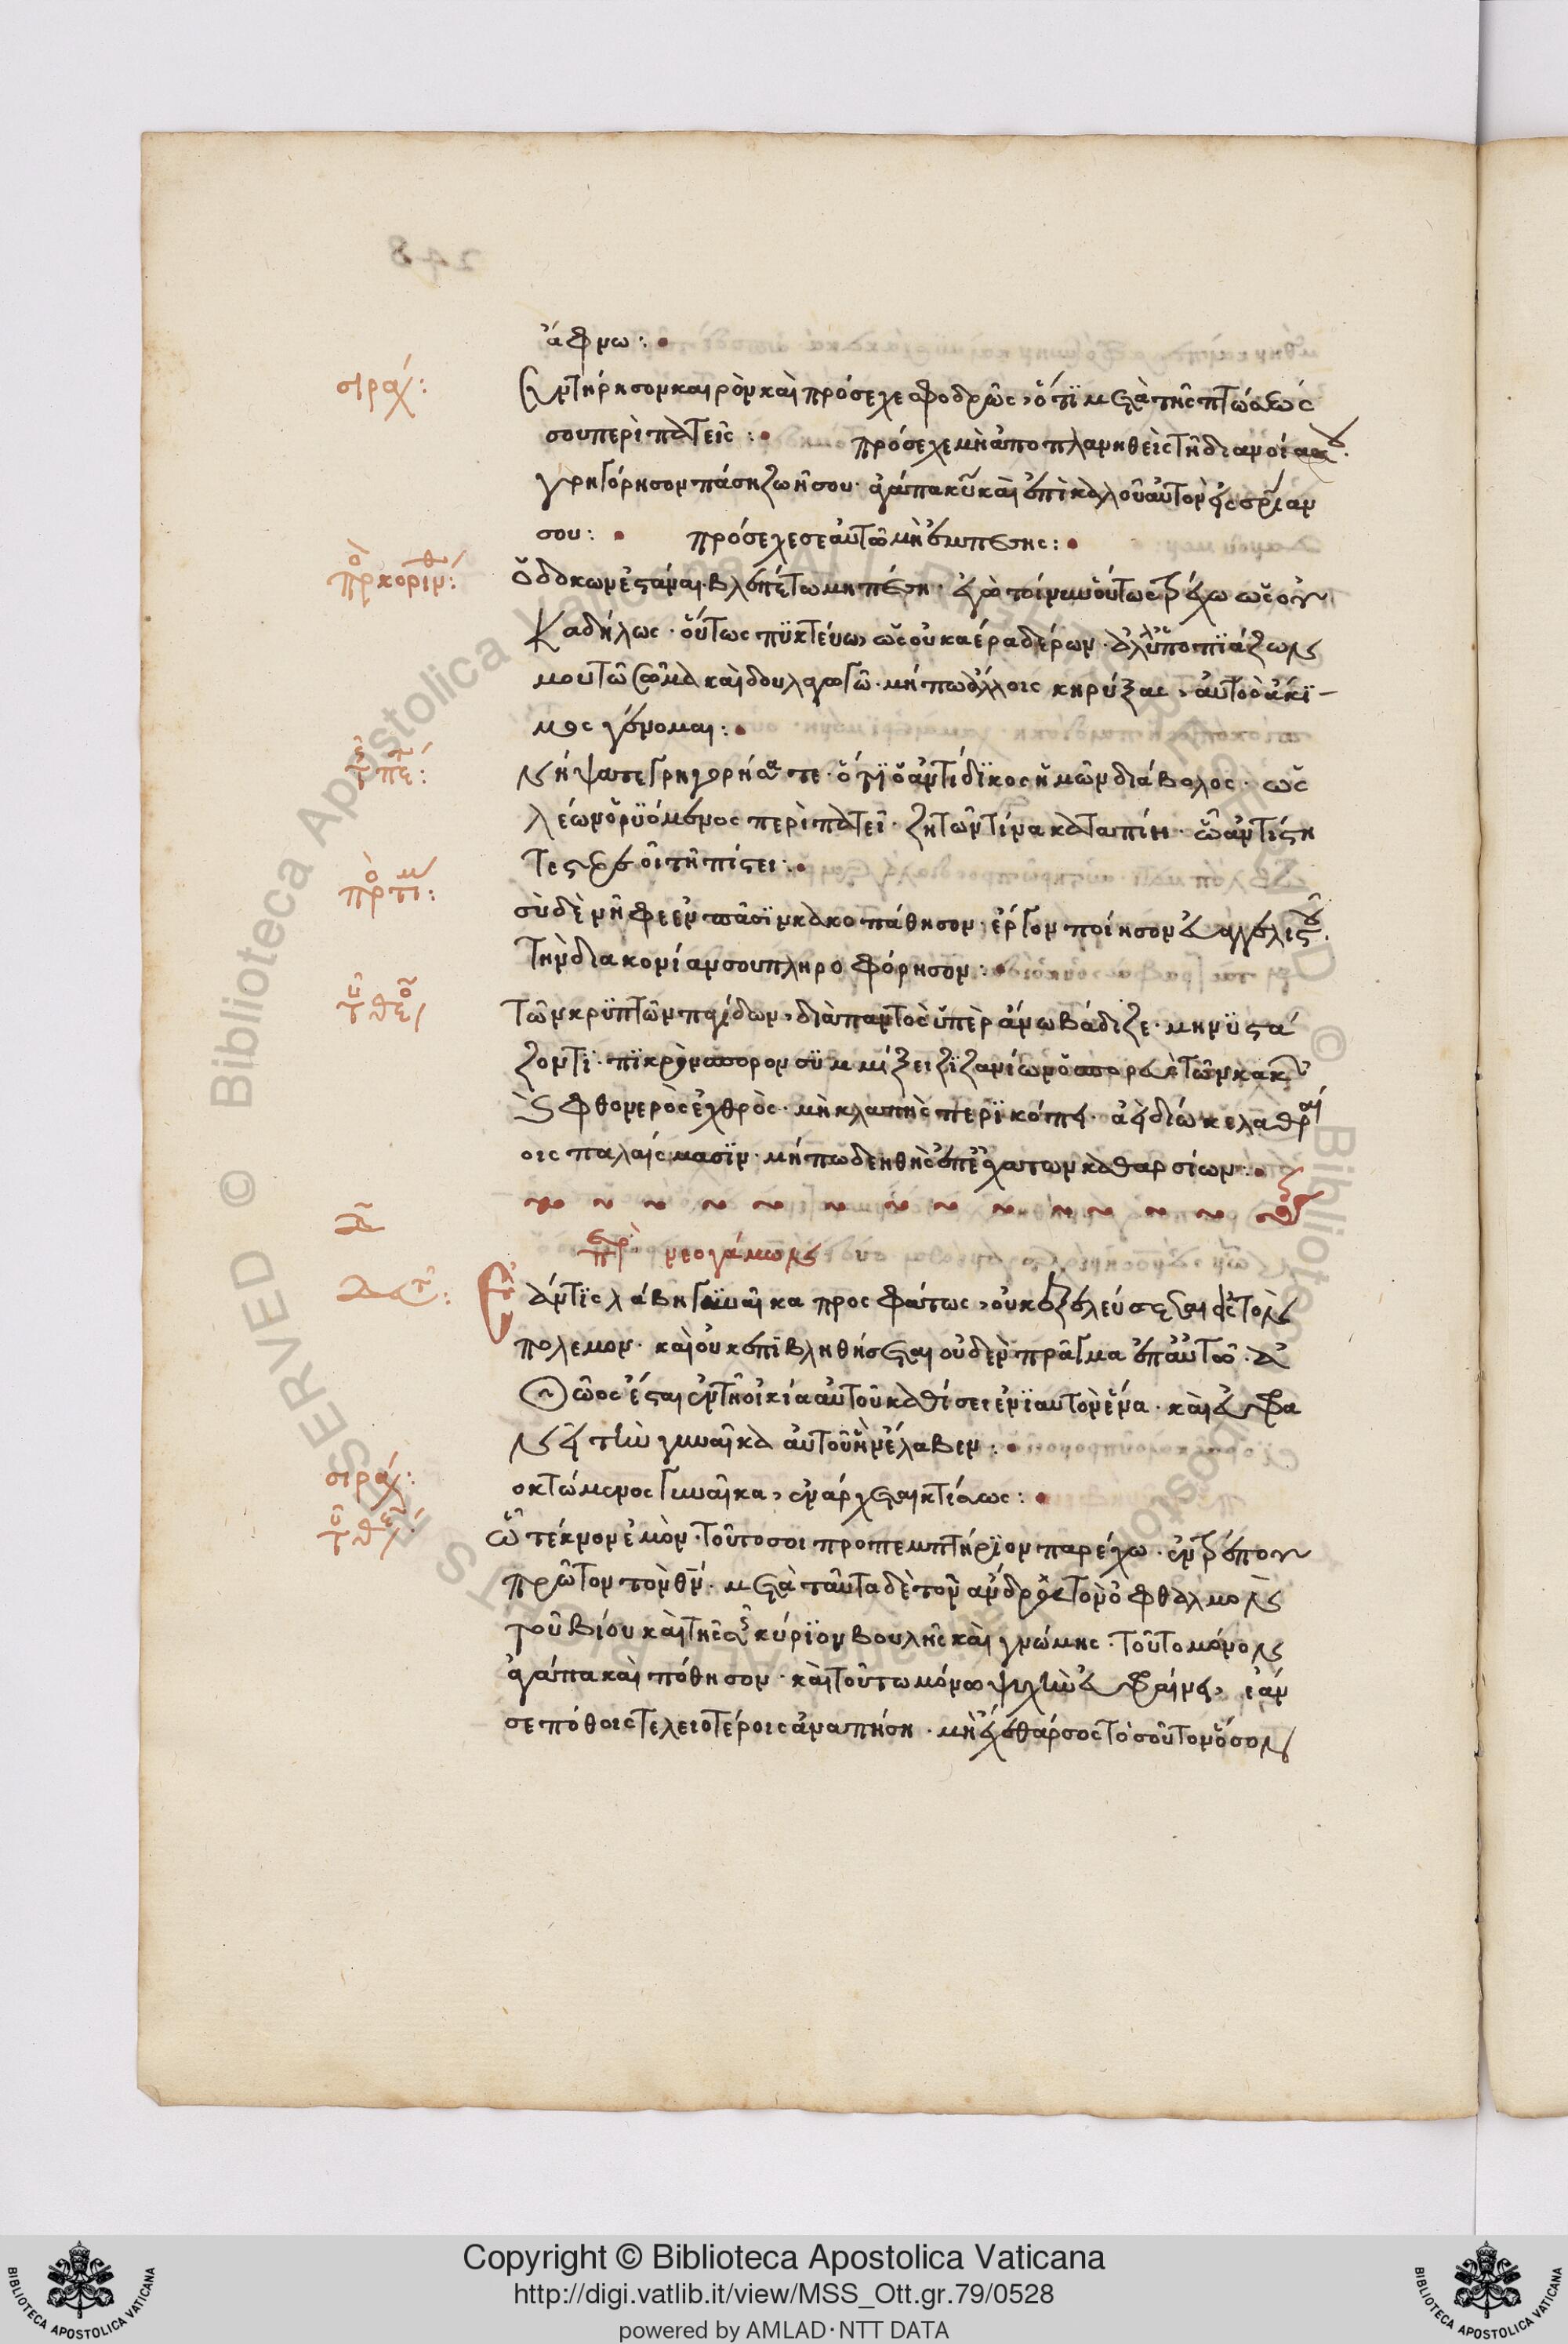 ἄφνω:
σιράχ: Συντήρησον καιρὸν καὶ πρόσεχε σφοδρῶς, ὅτι μετὰ τῆς πτώσεώς
σου περιπατεῖς: πρόσεχε μὴ ἀποπλανηθεὶς τῇ διανοίᾳ σου.
γρηγόρησον πάσῃ ζωῇ σου· ἀγάπα κν καὶ ἐπικαλοῦ αὐτὸν εἰς σρίαν
σου: πρόσεχε σεαυτῷ μὴ ἐμπέσῃς:
πρ κοριν: Ὁ δοκῶν ἑστάναι βλεπέτω μὴ πέσῃ· ἐγὼ τοίνυν οὕτως τρέχω ὡς οὐ
κ ἀδήλως· οὕτως πυκτεύω, ὡς οὐκ ἀέρα δέρων· ἀλλ' ὑποπιάζω
μου τὸ σῶμα καὶ δουλαγωγῶ· μή πω ἄλλοις κηρύξας, αὐτὸς ἀδόκι-
μος γένομαι:
πε: νήψατε γρηγορήσατε· ὅτι ὁ ἀντίδικος ἡμῶν διάβολος· ὡς
λέων ὠρυόμενος περιπατεῖ· ζητῶν τίνα καταπίῃ· ᾧ ἀντίστη
τε στερεοὶ τῇ πίστει:
πρ τι: σὺ δὲ νῆφε ἐν πᾶσιν κακοπάθησον· ἔργον ποίησον εὐαγγελιστοῦ.
τὴν διακονίαν σου πληροφόρησον:
τ θε τῶν κρυπτῶν παγίδων, διὰ παντὸς ὑπεράνω βάδιζε· μὴ νυστά
ζοντι πικρὸν σπόρον συμμίξει ζιζανίων ὁ σπορεὺς τῶν κακῶν
ὁ φθονερὸς ἐχθρός· μὴ κλαπῇς
οις παλαίσμασιν· μή πω δεηθῇς ἐπ' ἐσχάτων καθαρσίων:
περὶ νεογάμων
Ἐὰν τὶς λάβῃ γυναῖκα προσφάτως, οὐκ ἐξελεύσεται εἰς τὸν
πόλεμον· καὶ οὐκ ἐπιβληθήσεται οὐδὲν πρᾶγμα ἐπ' αὐτοῦ· ἀ
θῶος ἔσται ἐν τῇ οἰκία αὐτοῦ καθίσει ἐνιαυτὸν ἕνα· καὶ εὐφρα
νεῖ τὴν γυναῖκα αὐτοῦ ἣν ἔλαβεν:
σιράχ: ὁ κτώμενος γυναῖκα, ἐνάρχεται κτίσεως:
τ θε: ὦ τέκνον ἐμὸν· τοῦτο σοι προπεμπτήριον παρέχω· ἐντρέπου
πρῶτον τὸν θν· μετὰ ταῦτα δὲ τὸν ἄνδρα ὡς τὸν ὀφθαλμὸν
τοῦ βίου καὶ τῆς σῆς κύριον βουλῆς καὶ γνώμης· τοῦτο μόνον
ἀγάπα καὶ πόθησον· καὶ τούτω μόνω ψυχὴν εὔφραινε, ἐάν
σε πόθοις τελειοτέροις ἀναπήση· μὴ ἔχε θάρσος τοσοῦτον ὅσον